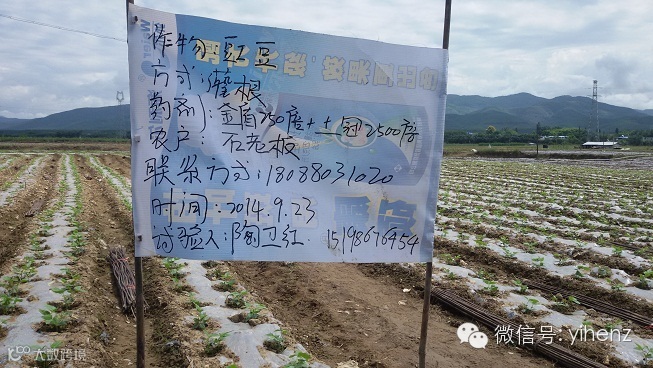 作物: 红豆
方式: 灌根
药剂: 金盾250倍+土冠2500倍
农户: 石老板
联系方式: 18088031020
时间: 2014.9.23
试验人: 陶卫红 15198676954
微信号: yihenz
大数跨境